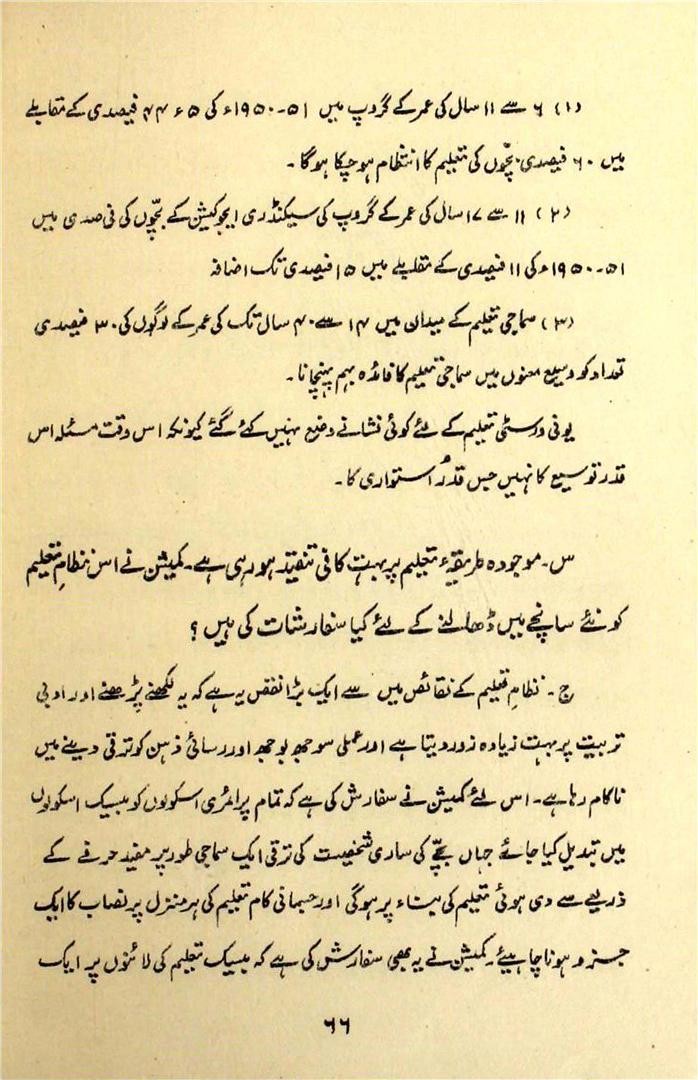 (۱) ۶ سے ۱۱ سال کی عمر کے گروپ میں ۵۱-۱۹۵۰ء کی ۵ء۴۴ فیصدی کے مقابلے
میں ۶۰ فیصدی بچّوں کی تعلیم کا انتظام ہو چکا ہوگا۔
(۲) ۱۱ سے ۱۷ سال کی عمر کے گروپ کی سیکنڈری ایجوکیشن کے بچّوں کی فی صدی میں
۵۱-۱۹۵۰ء کی ۱۱ فیصدی کے مقابلے میں ۱۵ فیصدی تک اضافہ
(۳) سماجی تعلیم کے میدان میں ۱۴ سے ۴۰ سال تک کی عمر کے لوگوں کی ۳۰ فیصدی
تعداد کو وسیع معنوں میں سماجی تعلیم کا فائدہ بہم پہنچانا۔
یونی ورسٹی تعلیم کے لئے کوئی نشانے وضع نہیں کئے گئے کیونکہ اس وقت مسئلہ اس
قدر توسیع کا نہیں جس قدر اُستواری کا۔
س۔ موجودہ طریقہء تعلیم پر بہت کافی تنقید ہو رہی ہے۔ کمیشن نے اس نظامِ تعلیم
کو نئے سانچے میں ڈھالنے کے لئے کیا سفارشات کی ہیں؟
ج۔ نظامِ تعلیم کے نقائص میں سے ایک بڑا نقص یہ ہے کہ یہ لکھنے پڑھنے اور ادبی
تربیت پر بہت زیادہ زور دیتا ہے اور عملی سوجھ بوجھ اور رسائی ذہن کو ترقی دینے میں
ناکام رہا ہے۔ اس لئے کمیشن نے سفارش کی ہے کہ تمام پرائمری اسکولوں کو بیسیک اسکولوں
میں تبدیل کیا جائے جہاں بچّے کی ساری شخصیت کی ترقی ایک سماجی طور پر مفید حرفے کے
ذریعے سے دی ہوئی تعلیم کی بناء پر ہوگی اور جسمانی کام تعلیم کی ہر منزل پر نصاب کا ایک
جزو ہونا چاہیئے۔ کمیشن نے یہ بھی سفارش کی ہے کہ بیسیک تعلیم کی لائنوں پر ایک
۶۶